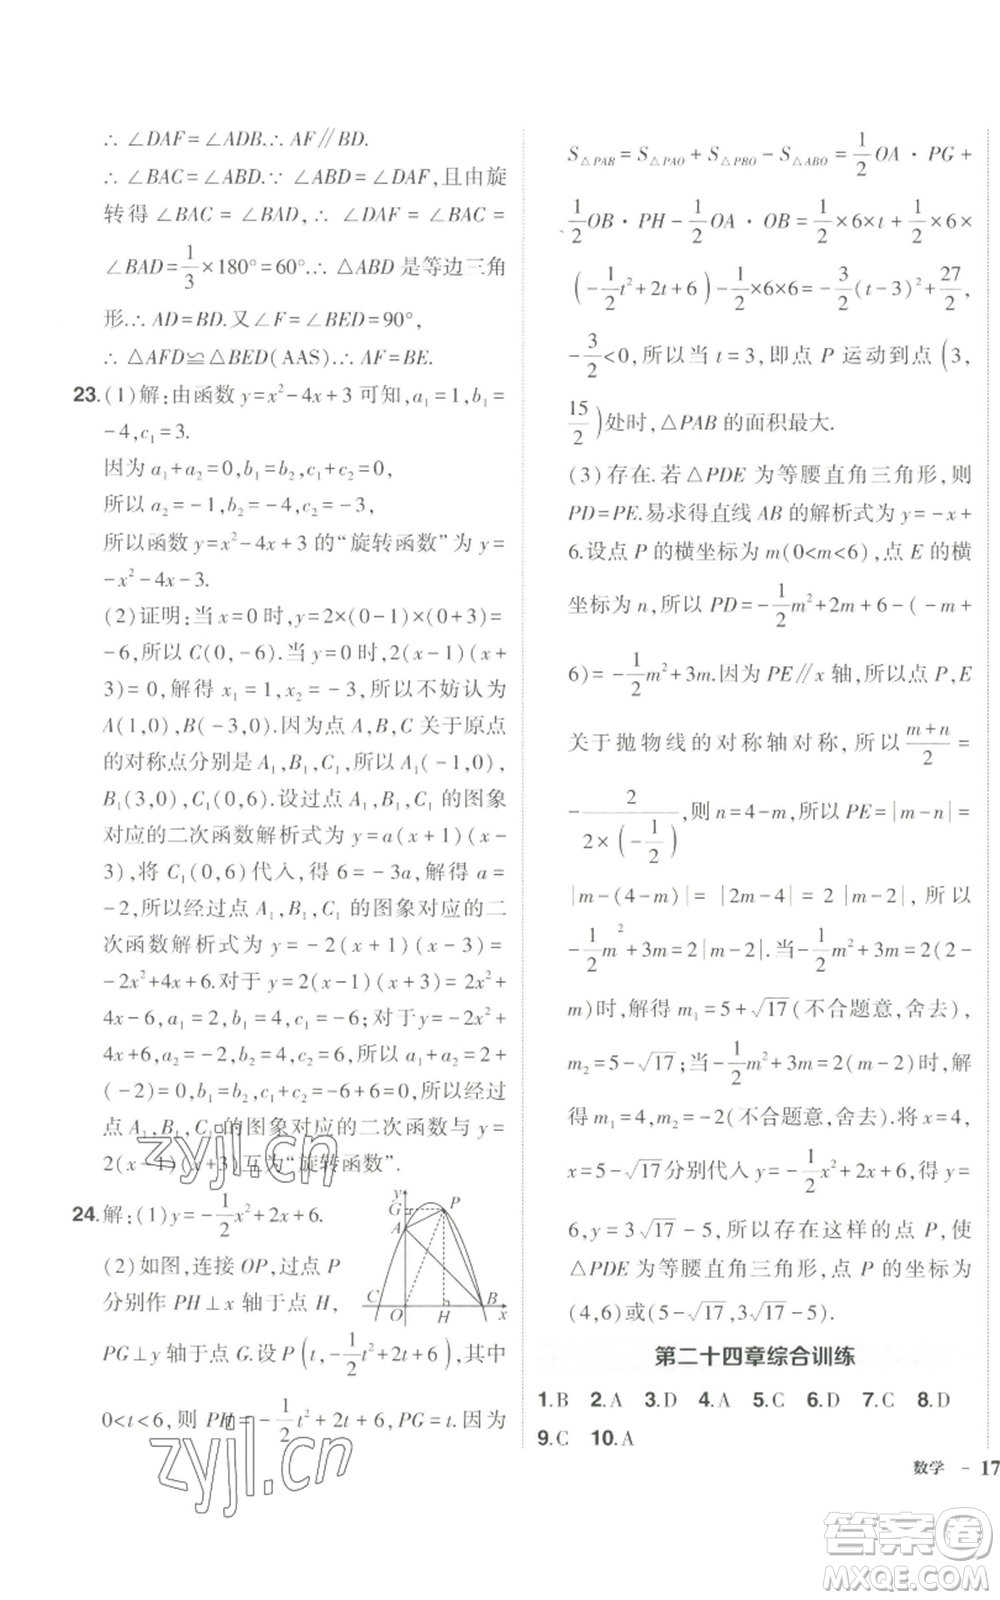 ∴ ∠DAF=∠ADB.∴ AF∥BD.
∴ ∠BAC=∠ABD.∵ ∠ABD=∠DAF,且由旋
转得 ∠BAC = ∠BAD, ∴ ∠DAF = ∠BAC =
∠BAD=1/3×180°=60°.∴ △ABD 是等边三角
形.∴ AD=BD.又∠F=∠BED=90°,
∴ △AFD≌△BED(AAS).∴ AF=BE.
23.(1)解:由函数 y=x²-4x+3 可知,a₁=1,b₁=
-4,c₁=3.
因为 a₁+a₂=0,b₁=b₂,c₁+c₂=0,
所以 a₂=-1,b₂=-4,c₂=-3,
所以函数 y=x²-4x+3 的“旋转函数”为 y=
-x²-4x-3.
(2)证明:当 x=0 时,y=2×(0-1)(0+3)=
-6,所以 C(0,-6).当 y=0 时,2(x-1)(x+
3)=0,解得 x₁=1,x₂=-3,所以不妨认为
A(1,0),B(-3,0).因为点 A,B,C 关于原点
的对称点分别是 A₁,B₁,C₁,所以 A₁(-1,0),
B₁(3,0),C₁(0,6).设过点 A₁,B₁,C₁ 的图象
对应的二次函数解析式为 y=a(x+1)(x-
3),将 C₁(0,6)代入,得 6=-3a,解得 a=
-2,所以经过点 A₁,B₁,C₁ 的图象对应的二
次函数解析式为 y=-2(x+1)(x-3)=
-2x²+4x+6.对于 y=2(x-1)(x+3)=2x²+
4x-6,a₁=2,b₁=4,c₁=-6;对于 y=-2x²+
4x+6,a₂=-2,b₂=4,c₂=6,所以 a₁+a₂=2+
(-2)=0,b₁=b₂,c₁+c₂=-6+6=0,所以经过
点 A₁,B₁,C₁ 的图象对应的二次函数与 y=
2(x-1)(x+3)互为“旋转函数”.
24.解:(1)y=-1/2x²+2x+6.
(2)如图,连接 OP,过点 P
分别作 PH⊥x 轴于点 H,
PG⊥y 轴于点 G.设 P(t,-1/2t²+2t+6),其中
0<t<6,则 PH=-1/2t²+2t+6,PG=t.因为
y
G
P
A
C
O
H
B
x
S△PAB=S△PAO+S△PBO-S△ABO=1/2OA·PG+
1/2OB·PH-1/2OA·OB=1/2×6×t+1/2×6×
(-1/2t²+2t+6)-1/2×6×6=-3/2(t-3)²+27/2,
-3/2<0,所以当 t=3,即点 P 运动到点(3,
15/2)处时,△PAB 的面积最大.
(3)存在.若△PDE 为等腰直角三角形,则
PD=PE.易求得直线 AB 的解析式为 y=-x+
6.设点 P 的横坐标为 m(0<m<6),点 E 的横
坐标为 n,所以 PD=-1/2m²+2m+6-(-m+
6)=-1/2m²+3m.因为 PE∥x 轴,所以点 P,E
关于抛物线的对称轴对称,所以(m+n)/2=
-2/(2×(-1/2)),则 n=4-m,所以 PE=|m-n|=
|m-(4-m)|=|2m-4|=2|m-2|,所以
-1/2m²+3m=2|m-2|.当-1/2m²+3m=2(2-
m)时,解得 m₁=5+√17(不合题意,舍去),
m₂=5-√17;当-1/2m²+3m=2(m-2)时,解
得 m₁=4,m₂=-2(不合题意,舍去).将 x=4,
x=5-√17分别代入 y=-1/2x²+2x+6,得 y=
6,y=3√17-5,所以存在这样的点 P,使
△PDE 为等腰直角三角形,点 P 的坐标为
(4,6)或(5-√17,3√17-5).
第二十四章综合训练
1.B 2.A 3.D 4.A 5.C 6.D 7.C 8.D
9.C 10.A
数学 - 17
zyjl.cn
zyjl.cn
答案卷
MXQE.COM